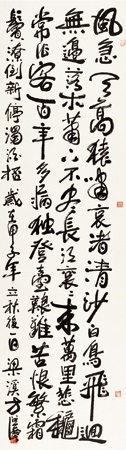 風急天高猿嘯哀渚清沙白鳥飛迴
無邊落木蕭〻下不尽長江衮〻来萬里悲龝
常作客百年多病獨登臺艱難苦恨繁霜
鬢潦倒新停濁酒桮歲在甲子年立秋後日梁溪方